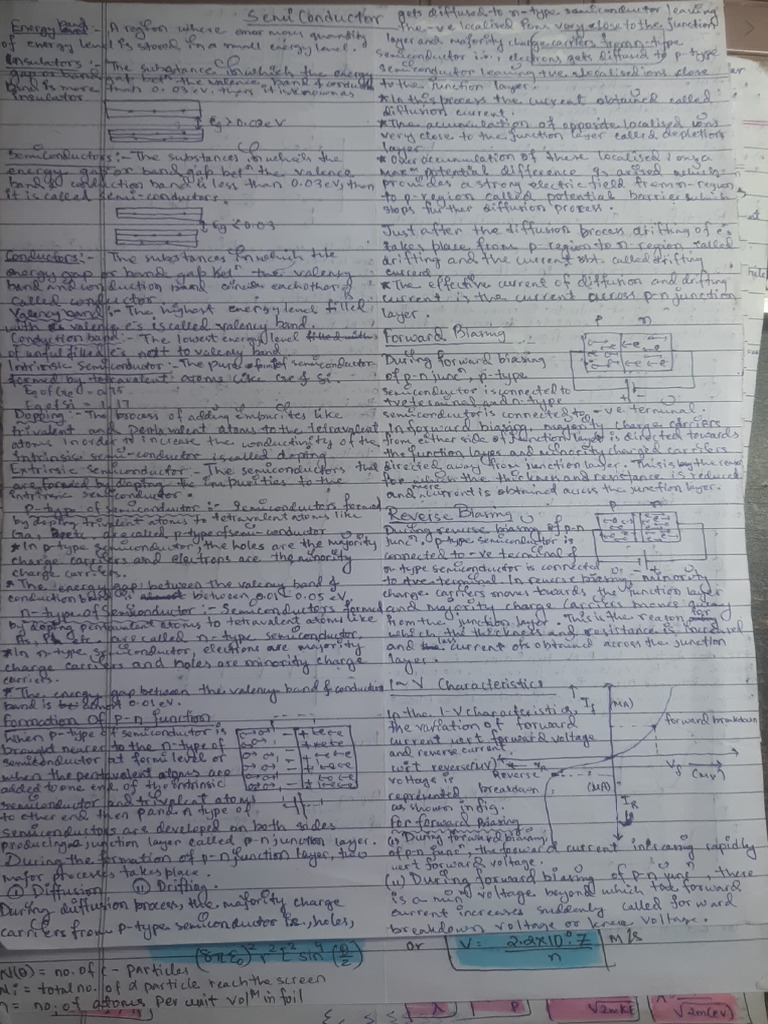 SemiConductor
Energy band :- A region where enormous quantity
of energy level is stood in a small energy level.
Insulators :- The substance in which the energy
gap or band gap betn the valence band & conductn
band is more than 0.03 eV, then it is known as
insulator
Eg > 0.02 eV
Semiconductors :- The substances in which the
energy gap or band gap betn the valence
band & conduction band is less than 0.03 eV, then
it is called semi-conductors.
Eg < 0.03
Conductors :- The substances in which the
energy gap or band gap betn the valency
band and conduction band each other is
called conductor
Valency band :- The highest energy level filled
with valency e's is called valency band.
Conduction band :- The lowest energy level
of unfulfilled e's next to valency band
Intrinsic Semiconductor :- The pure form of semiconductor
formed by tetravalent atoms like Ge & Si.
Eg of Ge = 0.75
Eg of Si = 1.17
Dopping :- The process of adding impurities like
trivalent and pentavalent atoms to the tetravalent
atoms in order to increase the conductivity of the
intrinsic semi-conductor is called doping
Extrinsic Semiconductor - The semiconductors that
are formed by doping the impurities to the
intrinsic semiconductor.
P-type of semiconductor :- Semiconductors formed
by doping trivalent atoms to tetravalent atoms like
Ga, B etc are called p-type of semi-conductor
* In p-type semiconductor, the holes are the majority
charge carriers and electrons are the minority
charge carriers.
* The energy gap between the valency band &
conduction band is between 0.01 - 0.05 eV.
n-type of Semiconductor :- Semiconductors formed
by doping pentavalent atoms to tetravalent atoms like
As, etc are called n-type semiconductor.
* In n-type semiconductor, electrons are majority
charge carriers and holes are minority charge
carriers.
* The energy gap between the valency band & conduction
band is almost 0.01 eV.
Formation of p-n junction
When p-type of semiconductor is
brought nearer to the n-type of
semiconductor at fermi level or
when the pentavalent atoms are
added to one end of the intrinsic
semiconductor and trivalent atoms
to other end then p and n type of
semiconductors are developed on both sides
producing a junction layer called p-n junction layer.
During the formation of p-n junction layer, two
major processes takes place.
(i) Diffusion (ii) Drifting.
During diffusion process, the majority charge
carriers from p-type semiconductor i.e., holes,
gets diffused to n-type semiconductor leaving
the -ve localised ions very close to the junction
layer and majority charge carriers from n-type
semiconductor i.e., electrons gets diffused to p-type
semiconductor leaving +ve localised ions close
to the junction layer.
* In this process the current obtained called
diffusion current.
* The accumulation of opposite localised ions
very close to the junction layer called depletion
layer
* Over accumulation of these localised ions, a
maxm potential difference is arised which
provides a strong electric field from n-region
to p-region called potential barrier which
stops further diffusion process.
Just after the diffusion process drifting of e's
takes place from p region to n region called
drifting and the current obt. called drifting
current.
* The effective current of diffusion and drifting
current is the current across p-n junction
layer.
Forward Biasing
P n
During forward biasing
of p-n juncn, p-type
semiconductor is connected to
+ve terminal and n-type
semiconductor is connected to -ve terminal.
In forward biasing, majority charge carriers
from either side of junction layer is directed towards
the junction layer and minority charged carriers
directed away from junction layer. This is by the reason
for which the thickness and resistance is reduced
and more current is obtained across the junction layer.
Reverse Biasing
P n
During reverse biasing of p-n
juncn, p-type semiconductor is
connected to -ve terminal of
n-type semiconductor is connected
to +ve terminal. In reverse biasing, minority
charge carriers moves towards the junction layer
and majority charge carriers moves away
from the junction layer. This is the reason for
which the thickness and resistance is increased
and less current is obtained across the junction
layer.
I ~ V Characteristics
In the I-V characteristics,
the variation of forward
current wrt forward voltage
and reverse current
wrt reverse
voltage is
represented
as shown in fig.
If (mA)
forward breakdown
Vf (mV)
Reverse breakdown
(μA)
IR
For forward Biasing
(i) During forward biasing
of p-n juncn, the forward current increasing rapidly
wrt forward voltage.
(ii) During forward biasing of p-n juncn, there
is a minm voltage beyond which the forward
current increases suddenly called forward
breakdown voltage or knee voltage.
(8πε₀)² r² E² sin⁴(θ/2)
or V = 2.2×10⁶ Z / n m/s
N(θ) = no. of - particles
Ni = total no. of α particle reach the screen
n = no. of atoms per unit volm in foil
λ
P
√2mKE
√2m(eV)